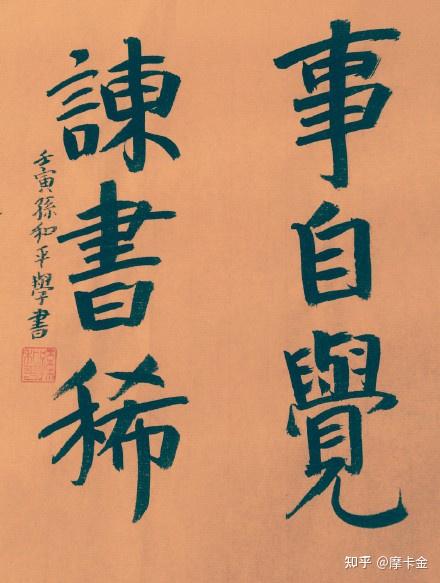 事自覺
諫書稀
壬寅孫和平學書
知乎 @摩卡金